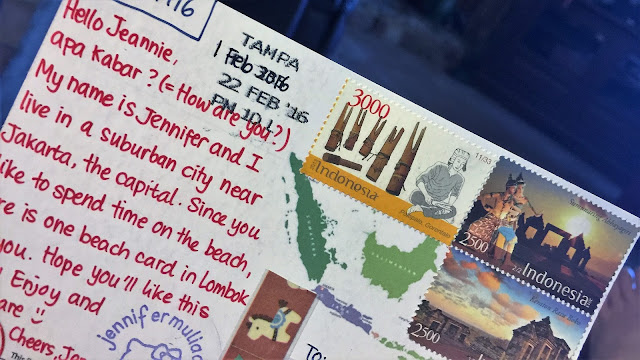 Hello Jeannie,
apa kabar? (= How are you?)
My name is Jennifer and I
live in a suburban city near
Jakarta, the capital. Since you
like to spend time on the beach,
re is one beach card in Lombok
you. Hope you'll like this
Enjoy and
are
Cheers, Jen
TAMPA
1 Feb 2016
22 FEB '16
PM 10 L
jennifermuliad
3000
Indonesia
11/33
2500
Indonesia
2500